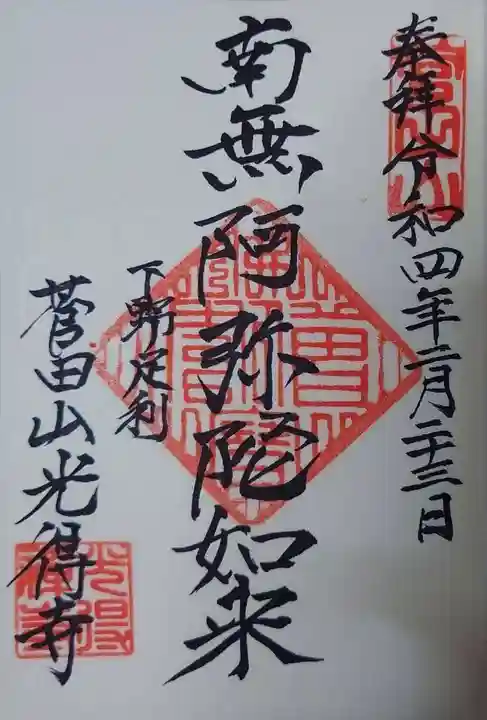 奉拝令和四年二月二十三日
南無阿弥陀如来
下野足利
菅田山光得寺